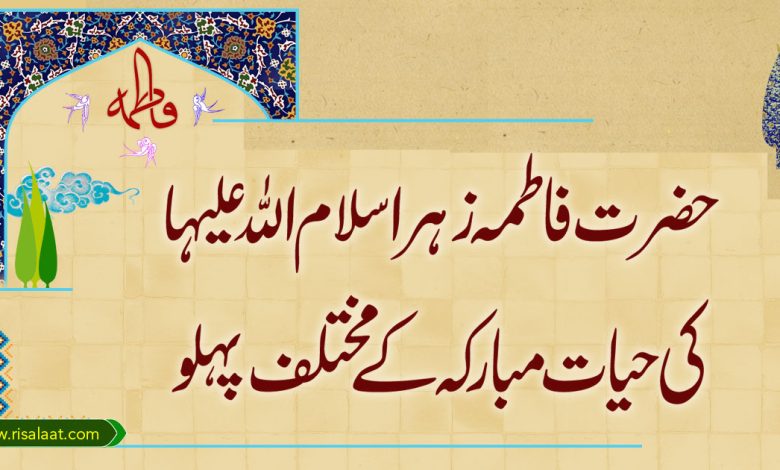 فاطمہ
حضرت فاطمہ زہرا سلام اللہ علیہا
کی حیات مبارکہ کے مختلف پہلو
w.risalaat.com